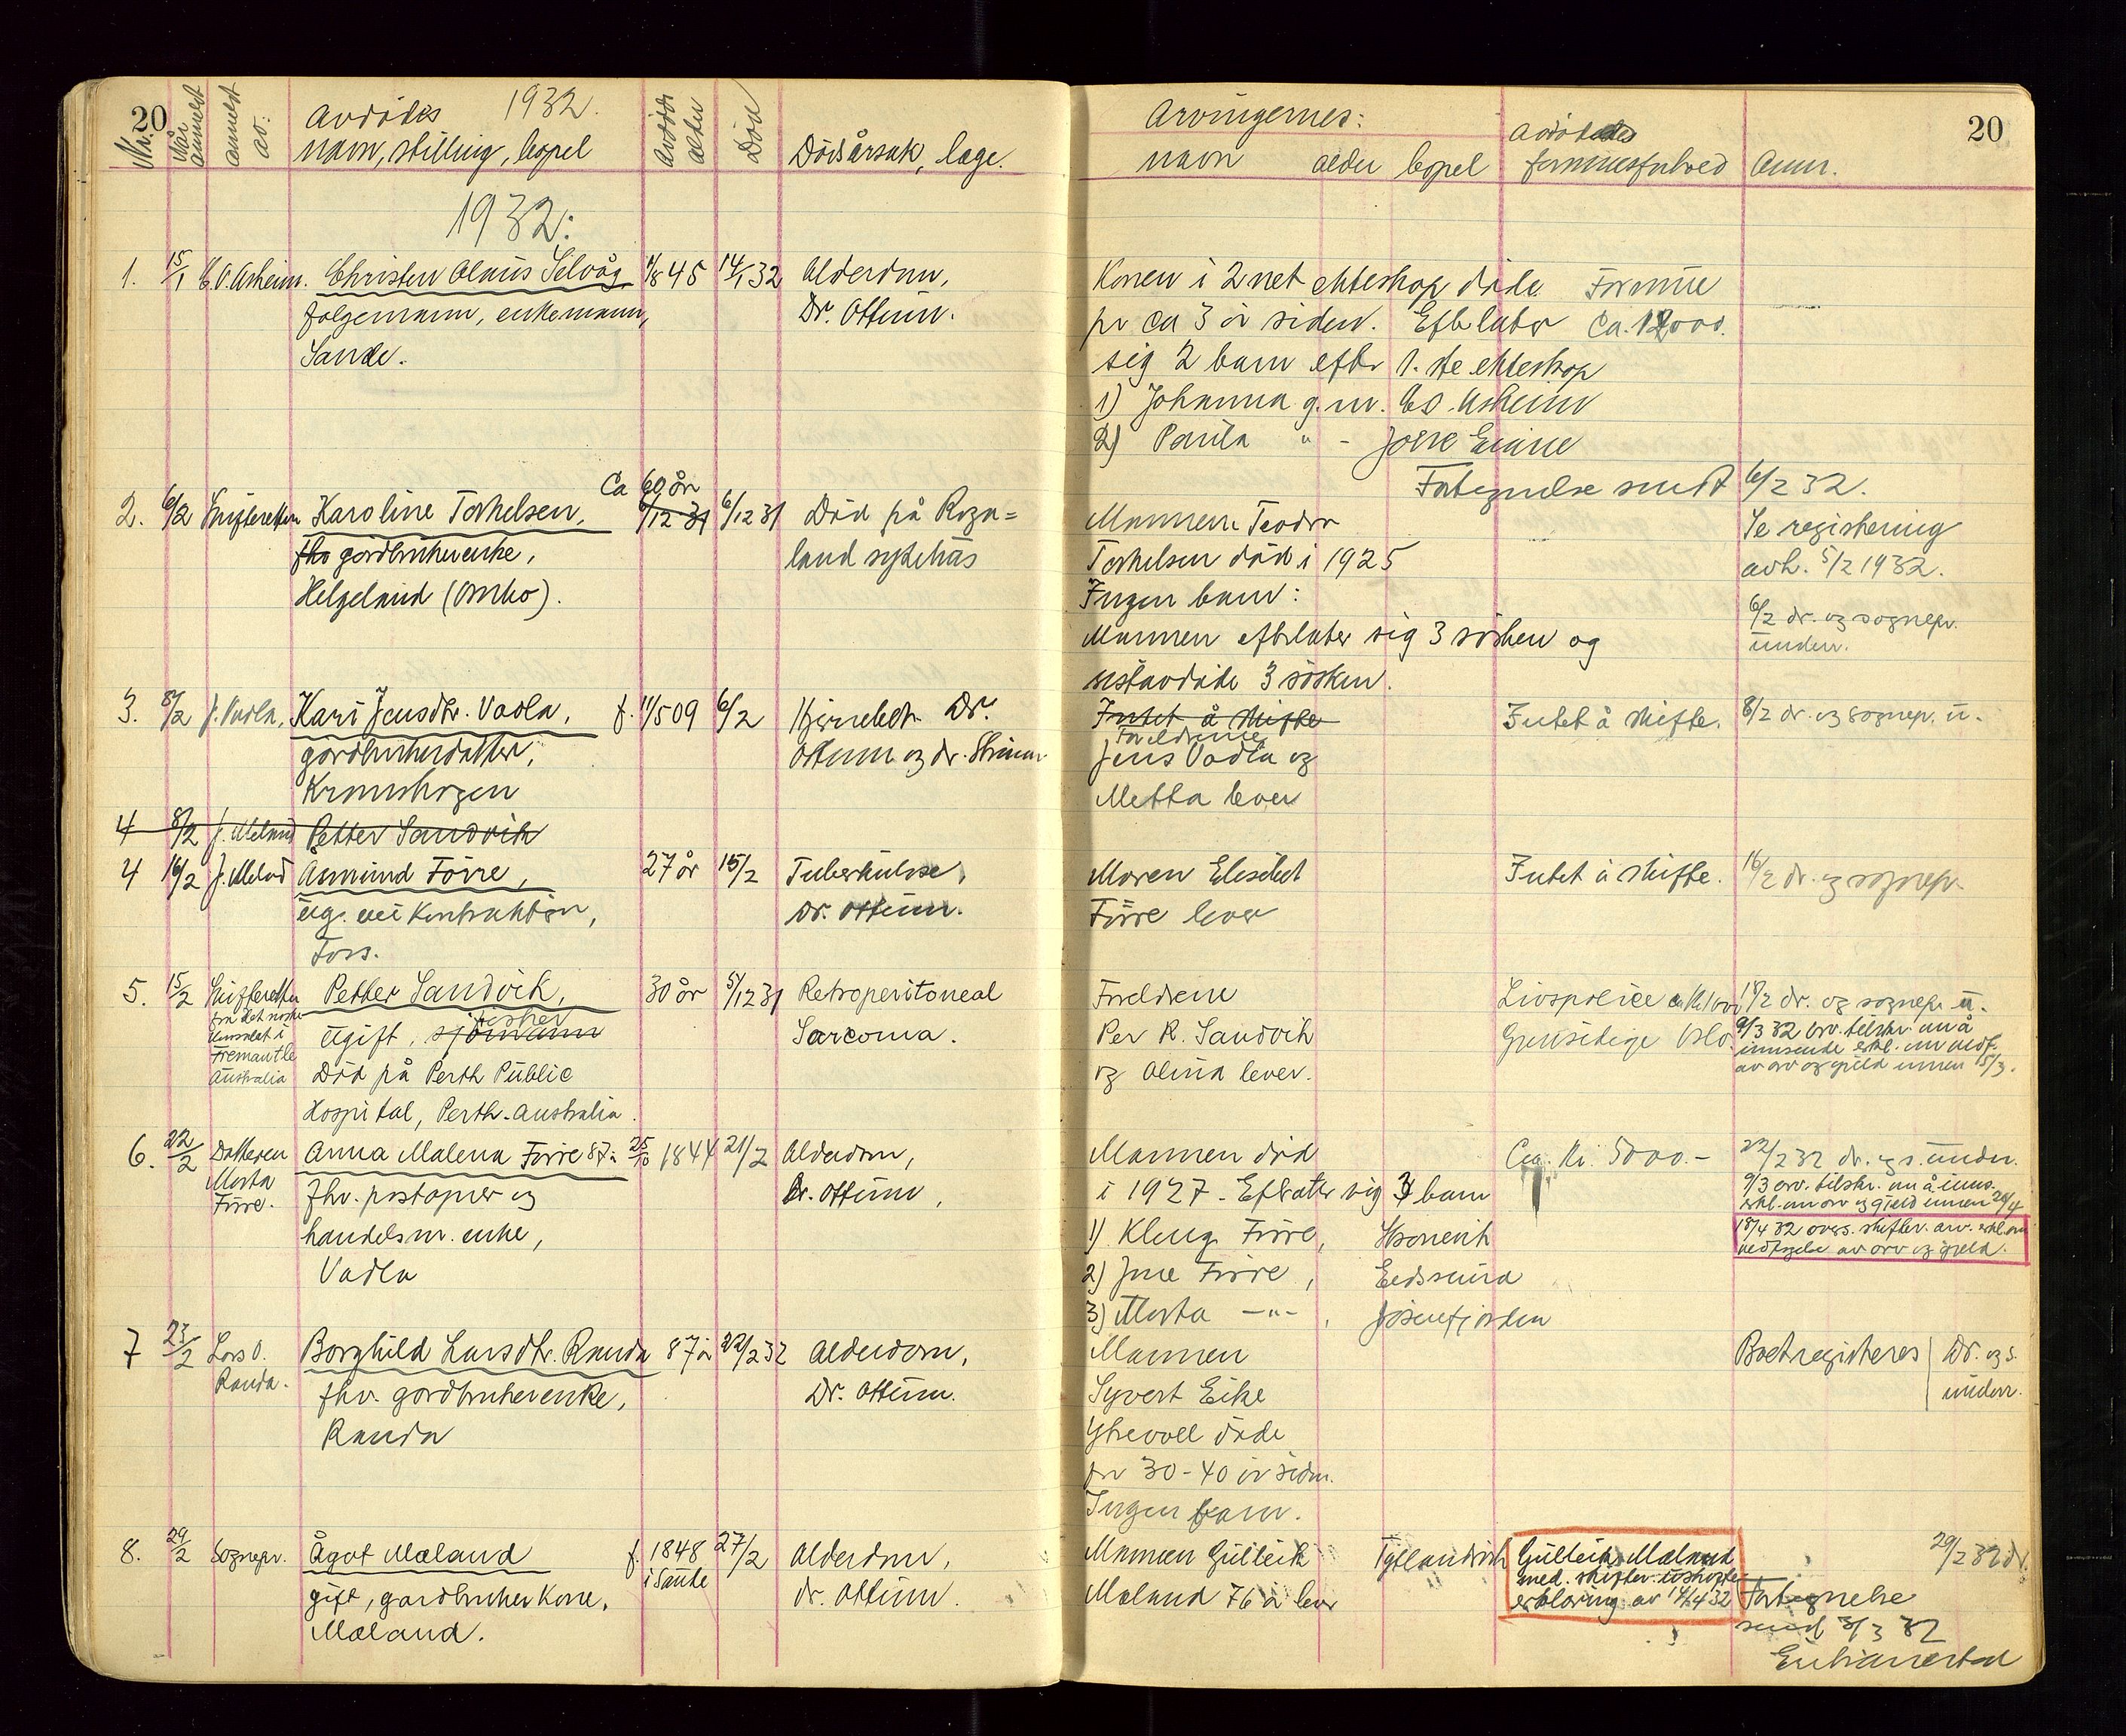 20
Nr.
Når anmeldt
anmeldt av:
Avdødes 1932.
navn, stilling, bopel
Avdødes alder
Død
Dødsårsak, læge.
Arvingernes:
navn alder bopel
Avdødes
formuesforhold
Anm.
20
1932:
1. 15/1 E.O. Asheim. Christen Olaus Selvåg 45 14/1 32 Alderdom,
folgemann, enkemann, Dr. Ottum.
Sande.
Konen i 2net ekteskap døde Formue
for ca 3 år siden. Efterlater ca. 12000.
sig 2 barn efter 1.ste ekteskap
1) Johanna g.m. E.O. Asheim
2) Paula " - Joere Eiane
Fortegnelse sendt 6/2 32.
Ca 60 år
2. 6/2 Skifteretten Karoline Torkelsen, 6/12 31 6/12 31 Død på Roga=
fhv gårdbrukerenke, land sykehus
Helgeland (Ombo).
Mannen Teodor
Torkelsen død i 1925
Ingen barn:
Mannen efterlater sig 3 søsken og
sistavdøde 3 søsken.
Se registrering
avh. 5/2 1932.
6/2 dr. og sognepr.
underr.
3. 8/2 J. Vadla, Kari Jensdtr. Vadla, f. 11/5 09 6/2 Hjernebet. Dr.
gårdbrukerdatter, Ottum og dr.
Kromshagen
Intet å skifte Intet å skifte. 8/2 dr. og sognepr. u.
Foreldrene
Jens Vadla og
Metta lever
4 8/2 J. Meland Petter Sandvik
4 16/2 J. Meland Åmund Førre, 27 år 15/2 Tuberkulose,
ug. vei Kontraktør, Dr. Ottum.
Foss.
Moren Elisabet Intet å skifte. 16/2 dr. og sognepr.
Førre lever
5. 15/2 Skifteretten Petter Sandvik, 30 år 5/12 31 Retroperitoneal
fra det norske
konsulat i
Fremantle
Australia
ugift, sjømann fisker Sarcoma.
Død på Perth Public
Hospital, Perth-Australia.
Foreldrene Livspolice
Per R. Sandvik Gjensidige Oslo.
og Olina lever.
18/2 dr. og sognepr. u.
9/3 32 arv. tilskr. om å
innsende erkl. om vedt.
av arv og gjeld innen 15/3.
6. 22/2 Datteren Marta Førre. Anna Malena Førre 87 år 25/10 1844 21/2 Alderdom,
fhv. postopner og Dr. Ottum,
handelsm. enke,
Vadla
Mannen død Ca. Kr. 5000.-
i 1927. Efterlatter sig 3 barn
1) Kleng Førre,
2) Jone Førre, Eidssund
3) Marta -"-, Jøsenfjorden
22/2 32 dr. og s. underr.
9/3 arv. tilskr. om å inns.
erkl. om arv og gjeld innen 20/4
18/4 32 overs. skifter. arv. erkl. om
vedtagelse av arv og gjeld.
7 23/2 Lars O. Randa. Borghild Larsdtr. Randa 87 år 22/2 32 Alderdom,
fhv. gårdbrukerenke, Dr. Ottum.
Randa
Mannen Boet registeres Dr. og s.
Syvert Eike underr.
døde
for 30-40 år siden.
Ingen barn.
8. 29/2 Sognepr. Ågot Mæland f. 1848 i Sauda 27/2 Alderdom,
gift, gårdbruker Kone, dr. Ottum.
Mæland.
Mannen Gulleik
Mæland 76 år lever
Gulleik Mæland
med. skifter. uskifte
erklæring av 14/4 32
29/2 32 dr.
Fortegnelse
sendt 3/3 32
Enkemannen